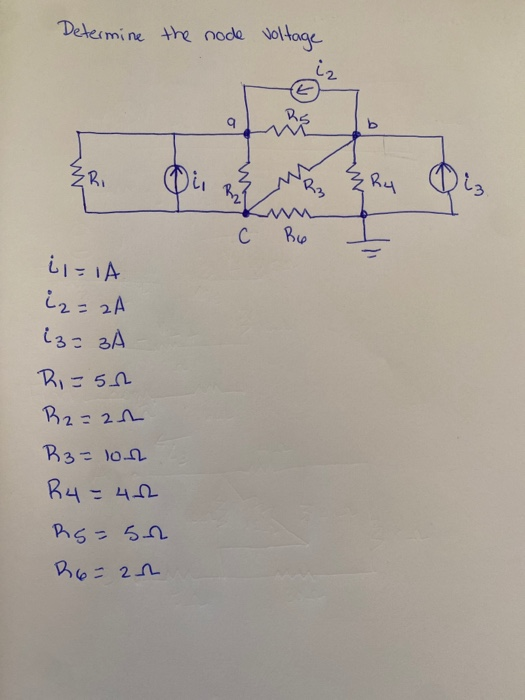 Determine the node voltage
i2
a R5 b
R1 i1 R2 R3 R4 i3
C R6
i1 = 1A
i2 = 2A
i3 = 3A
R1 = 5Ω
R2 = 2Ω
R3 = 10Ω
R4 = 4Ω
R5 = 5Ω
R6 = 2Ω